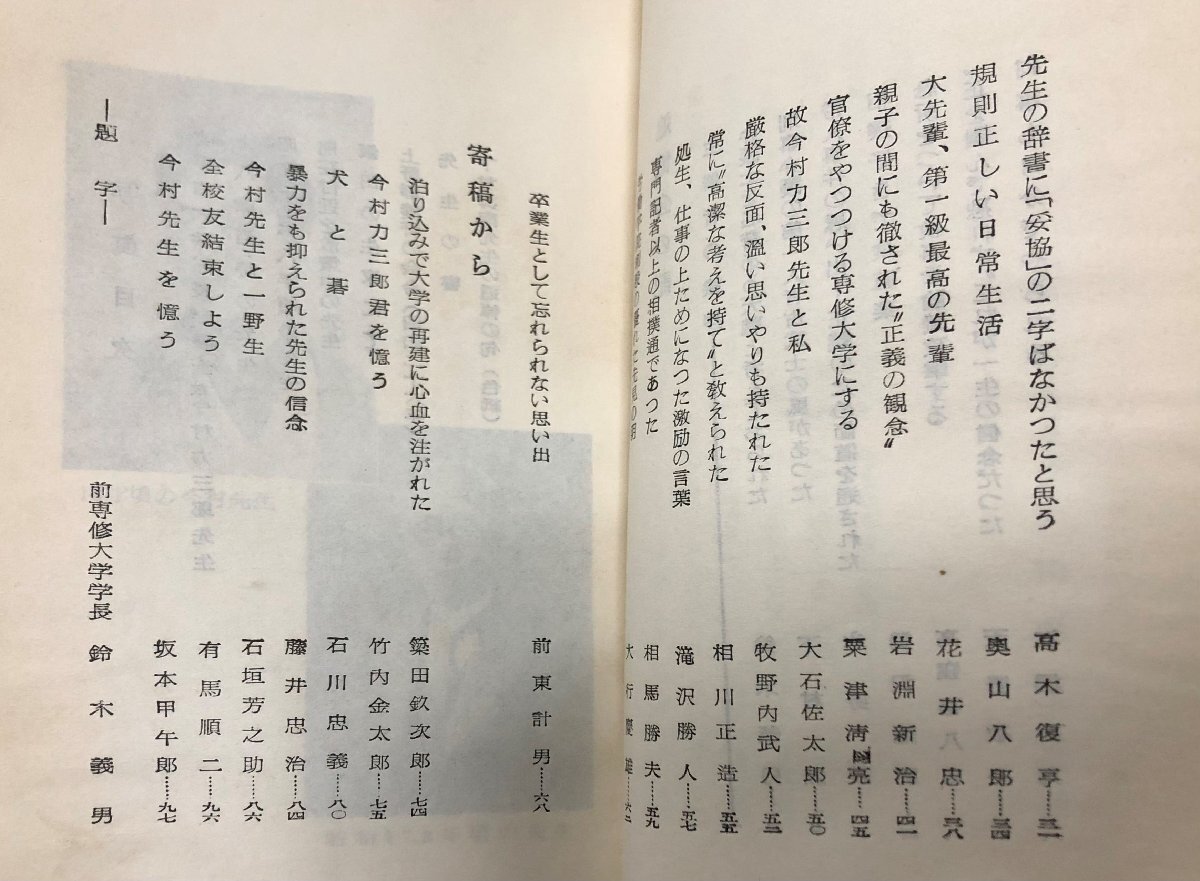 先生の辞書に「妥協」の二字はなかつたと思う　高木復亨……三一
規則正しい日常生活　奥山八郎……三四
大先輩、第一級最高の先輩　花井忠……三八
親子の間にも徹された〝正義の観念〟　岩淵新治……四一
官僚をやつつける専修大学にする　栗津清亮……四五
故今村力三郎先生と私　大石佐太郎……五〇
厳格な反面、温い思いやりも持たれた　牧野内武人……五三
常に〝高潔な考えを持て〟と教えられた　相川正造……五五
処生、仕事の上ためになつた激励の言葉　滝沢勝人……五七
専門記者以上の相撲通であつた　相馬勝夫……五九
卒業生として忘れられない思い出　前東計男……六八
寄稿から
泊り込みで大学の再建に心血を注がれた　簗田欽次郎……七四
今村力三郎君を憶う　竹内金太郎……七五
犬と碁　石川忠義……八〇
暴力をも抑えられた先生の信念　藤井忠治……八四
今村先生と一野生　石垣芳之助……八六
全校友結束しよう　有馬順二……九六
今村先生を憶う　坂本甲午郎……九七
―題字―　前専修大学学長　鈴木義男